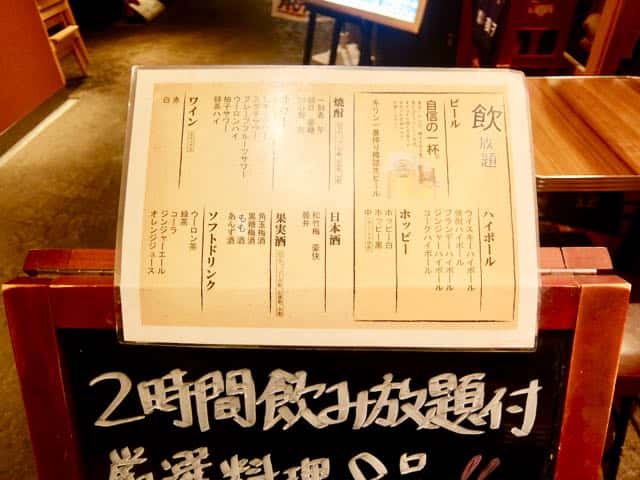 飲
放題
ビール
自信の一杯。
キリン一番搾り樽詰生ビール
ハイボール
ウイスキーハイボール
焼酎ハイボール
ブランデーハイボール
ジンジャーハイボール
コークハイボール
ホッピー
ホッピー白
ホッピー黒
中
焼酎
日本酒
松竹梅 豪快
スダチサワー
グレープフルーツサワー
ウーロンハイ
柚子サワー
緑茶ハイ
果実酒
角玉梅酒
黒糖梅酒
もも酒
あんず酒
ワイン
赤
白
ソフトドリンク
ウーロン茶
緑茶
コーラ
ジンジャーエール
オレンジジュース
2時間飲み放題付
厳選料理8品!!